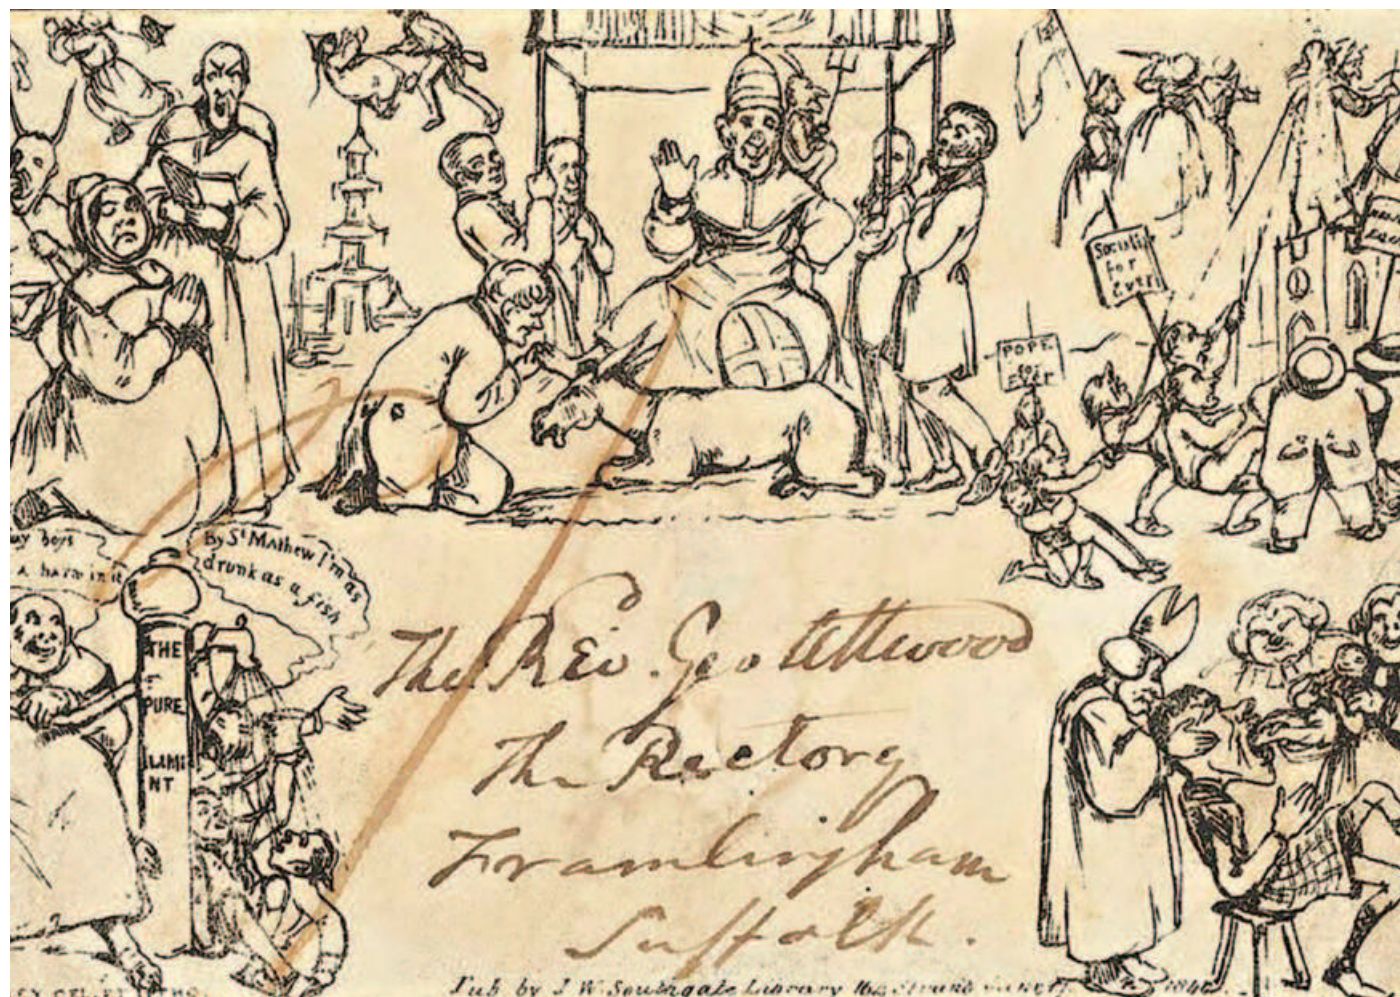 Socialis
for
Ever
POPE
for
Ever
uy boys
By St Mathew I'm as
drunk as a fish
THE
PURE
LIMI
NT
The Rev. Geo Attwood
The Rectory
Framlingham
Suffolk.
Pub by J. W. Southgate Library 164 Strand